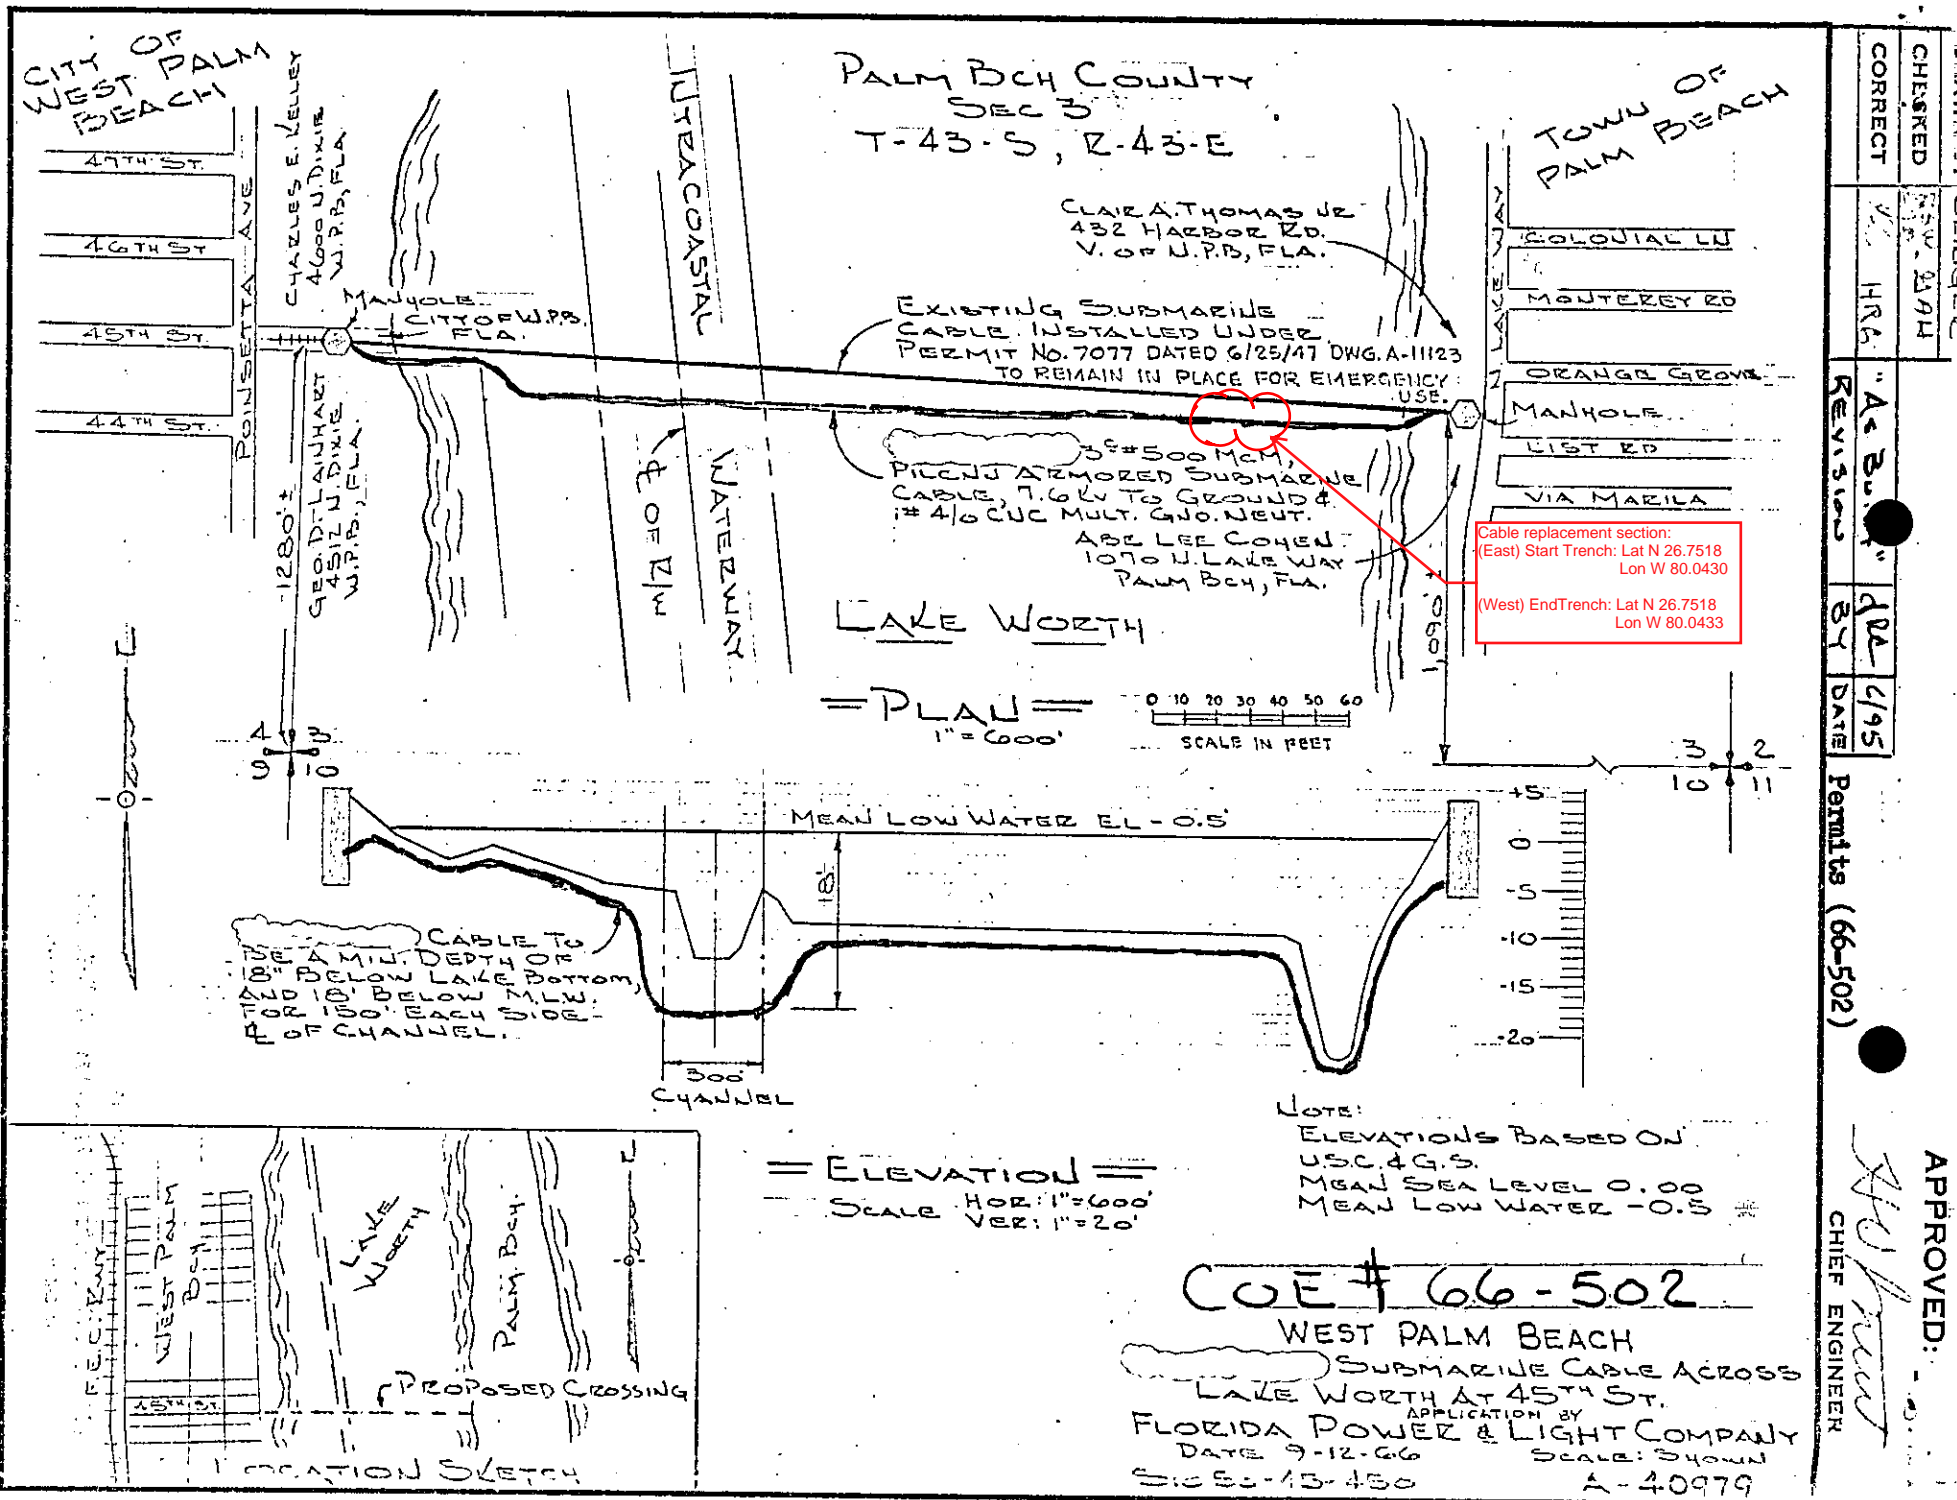 CITY OF
WEST PALM
BEACH
47TH ST.
46TH ST
45TH ST.
44TH ST.
POINSETTA AVE
CHARLES E. KELLEY
4600 N. DIXIE
W.P.B, FLA
MANHOLE
CITY OF W.P.B.
FLA.
GEO. D. LAINHART
4512 N. DIXIE
W.P.B., FLA.
1280'±
INTRACOASTAL
WATERWAY
℄ OF R/W
PALM BCH COUNTY
SEC 3
T-43-S, R-43-E
TOWN OF
PALM BEACH
CLAIR A. THOMAS JR
432 HARBOR RD.
V. OF N.P.B, FLA.
EXISTING SUBMARINE
CABLE INSTALLED UNDER
PERMIT NO. 7077 DATED 6/25/47 DWG. A-11123
TO REMAIN IN PLACE FOR EMERGENCY
USE.
3C #500 MCM,
PILCNJ ARMORED SUBMARINE
CABLE, 7.6 KV TO GROUND &
1# 4/0 CNC MULT. GND. NEUT.
ABE LEE COHEN
1070 N. LAKE WAY
PALM BCH, FLA.
N LAKE WAY
COLONIAL LN
MONTEREY RD
ORANGE GROVE
MANHOLE
LIST RD
VIA MARILA
Cable replacement section:
(East) Start Trench: Lat N 26.7518
Lon W 80.0430
(West) EndTrench: Lat N 26.7518
Lon W 80.0433
1,090'±
LAKE WORTH
PLAN
1"=600'
0 10 20 30 40 50 60
SCALE IN FEET
N
4 3
9 10
3 2
10 11
MEAN LOW WATER EL -0.5'
18'
+5
0
-5
-10
-15
-20
CABLE TO
BE A MIN. DEPTH OF
18" BELOW LAKE BOTTOM,
AND 18' BELOW M.L.W.
FOR 150' EACH SIDE
℄ OF CHANNEL.
300'
CHANNEL
ELEVATION
SCALE HOR: 1"=600'
VER: 1"=20'
NOTE:
ELEVATIONS BASED ON
U.S.C. & G.S.
MEAN SEA LEVEL 0.00
MEAN LOW WATER -0.5
F.E.C. RWY
WEST PALM
BCH.
LAKE
WORTH
PALM BCH.
N
45TH ST.
PROPOSED CROSSING
LOCATION SKETCH
COE # 66-502
WEST PALM BEACH
SUBMARINE CABLE ACROSS
LAKE WORTH AT 45TH ST.
APPLICATION BY
FLORIDA POWER & LIGHT COMPANY
DATE 9-12-66 SCALE: SHOWN
A-40979
CHECKED
CORRECT
HRG
"As Built" dRL 6/95
REVISION BY DATE
Permits (66-502)
APPROVED:
CHIEF ENGINEER